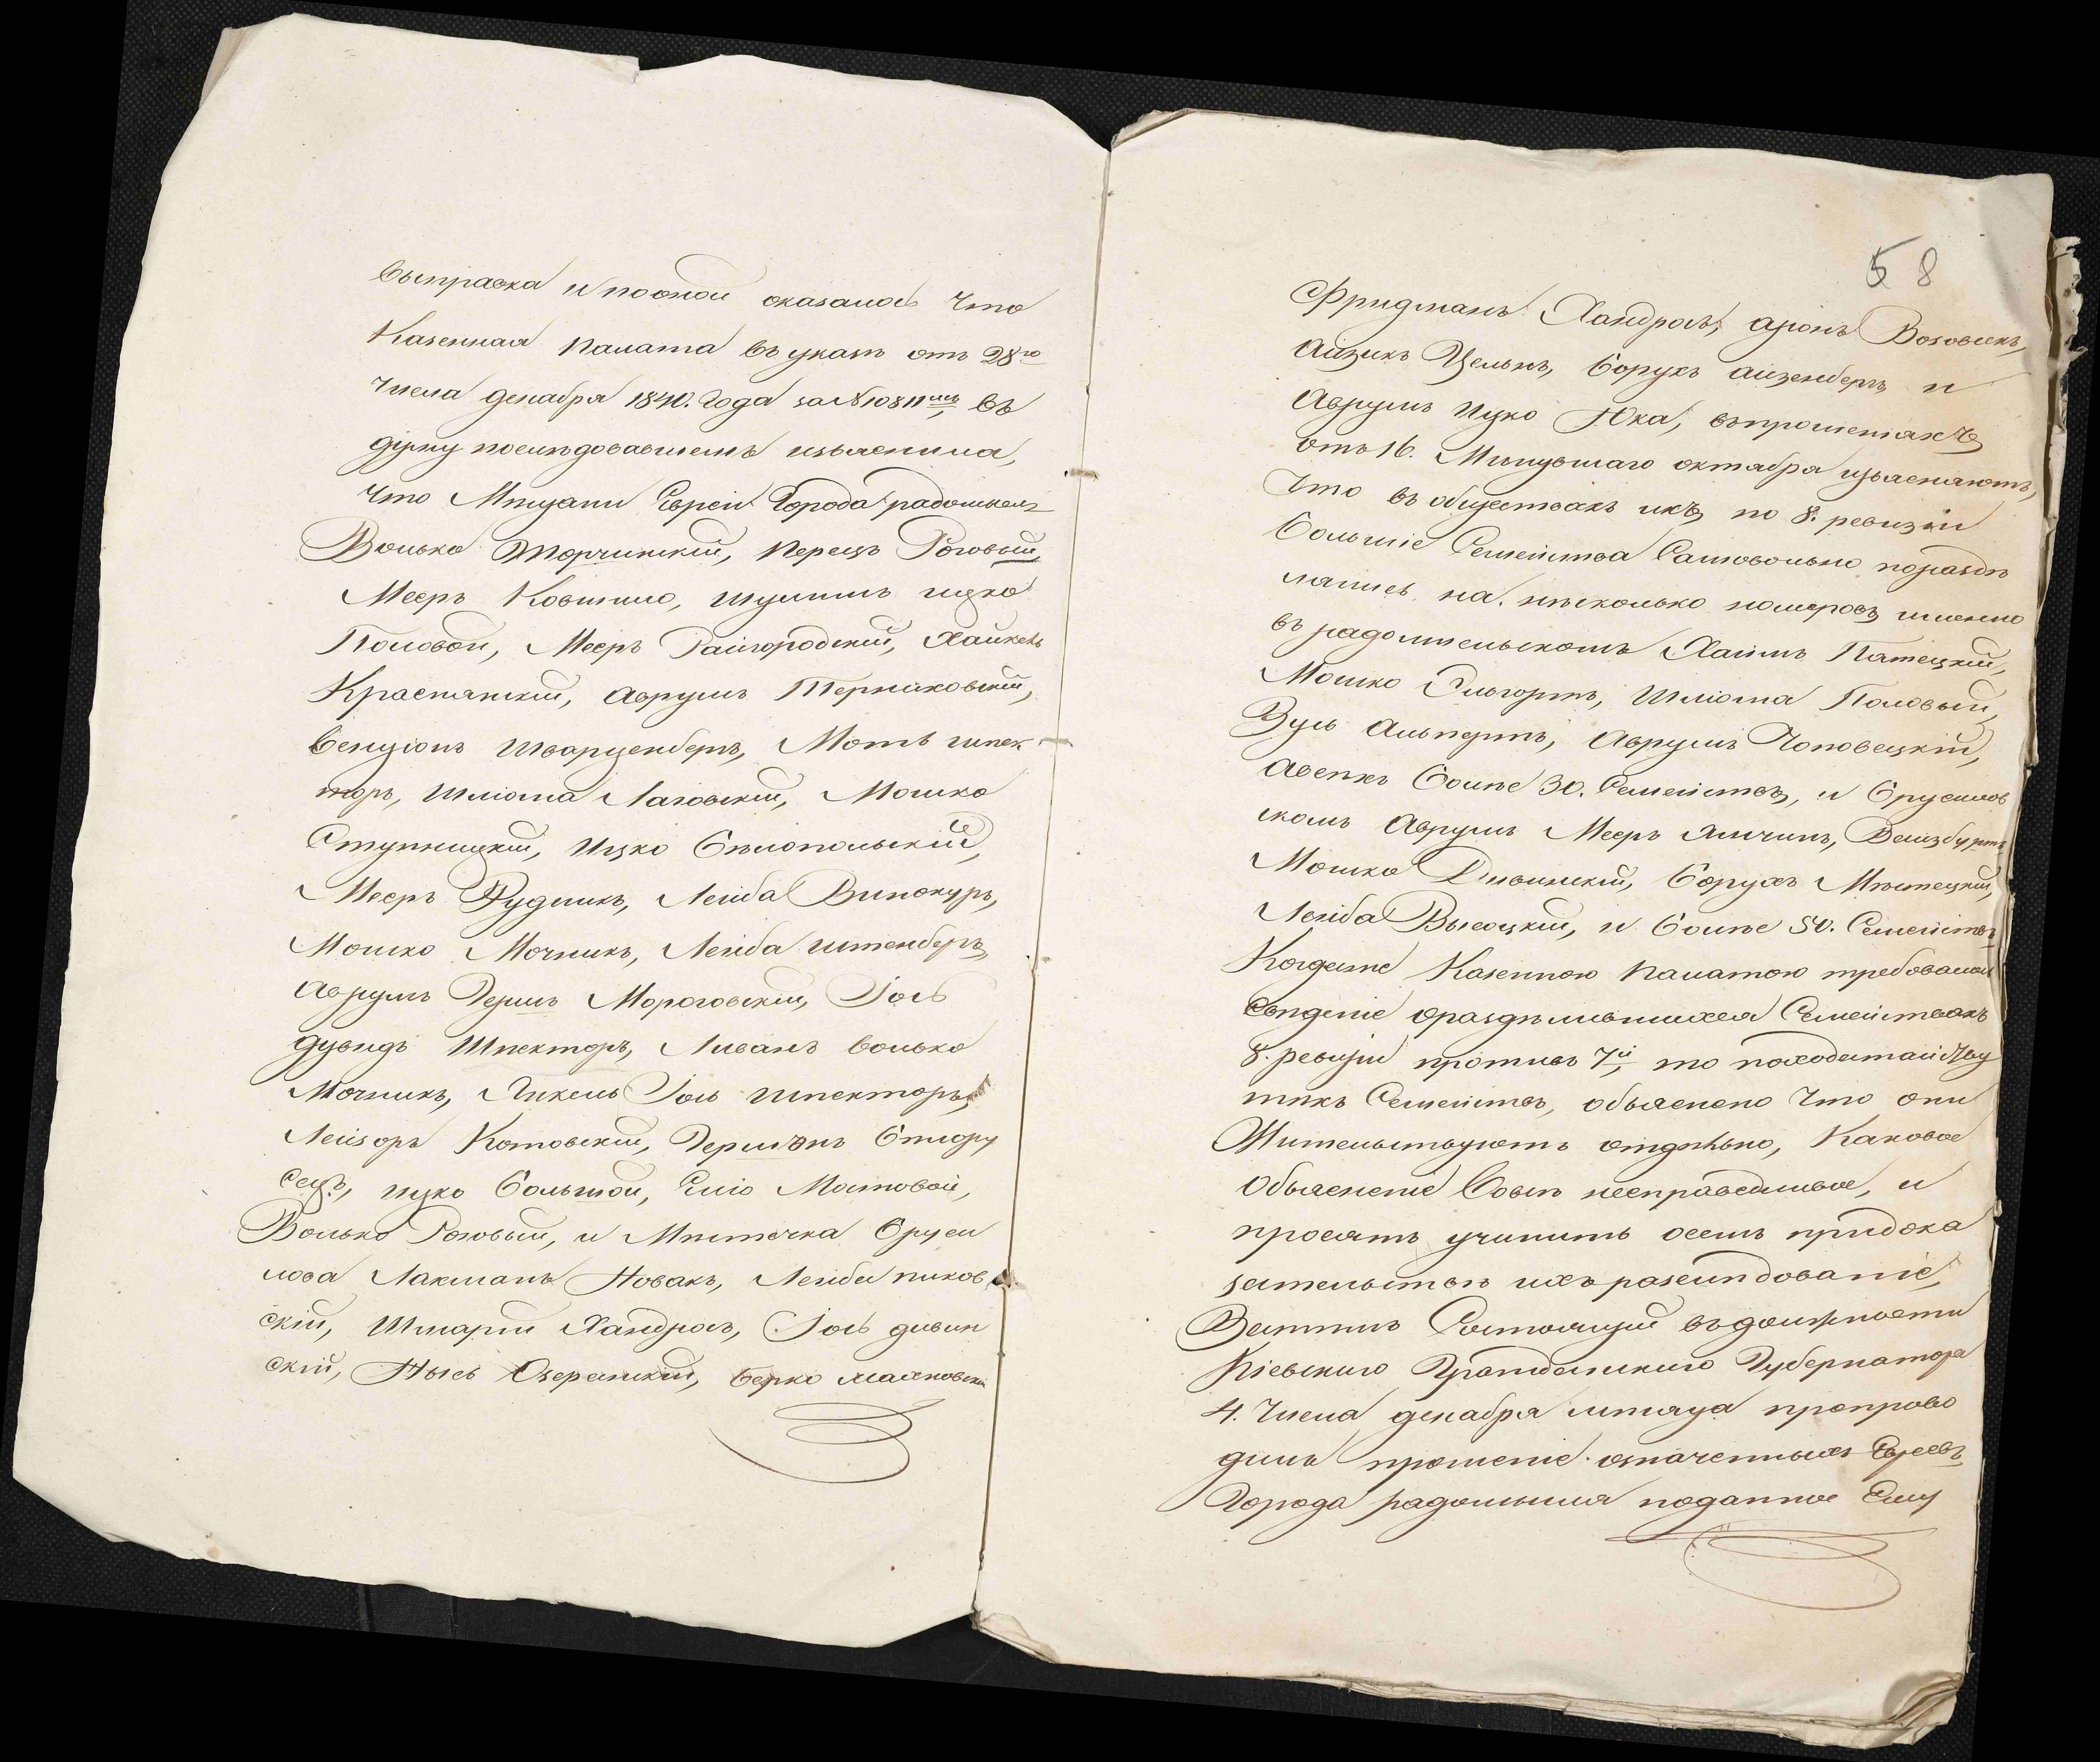 выправка и по оной оказалось что
Казенная Палата въ указѣ отъ 28го
числа декабря 1840. года за № 10811мъ, въ
думу последовавшемъ изъяснила,
что Мѣщани Евреи Города радомысля
Волько Торчинскій, Перецъ Роговый,
Мееръ Ковшило, Шулимъ ицко
Половой, Мееръ Райгородскій, Хаикель
Краснянскій, Аврумъ Терняховскій,
Бенціонъ Шварценберъ, Моть шпек
торъ, Шліома Лаговскій, Мошко
Ступницкій, Ицко Бѣлопольскій,
Мееръ Рудникъ, Лейба Винокуръ,
Мошко Мочникъ, Лейба штенберъ,
Аврумъ Гершъ Мороговскій, Іось
дувидъ Шпекторъ, Ливанъ волько
Мочникъ, Янкель Іось шпекторъ,
Лейзоръ Котовскій, Гершонъ Бѣлору
сецъ, ицко Большой, Еліо Мостовой,
Волько Роговый, и Мѣстечка Бруси
лова Лахманъ Новакъ, Лейба пиков
скій, Шмарій Хандросъ, Іось дивин
скій, Нысь Озерянскій, Берко маляновскій
58
Фридманъ Хандросъ, аронъ Возовикъ,
Айзикъ Цельнъ, Борухъ айзенбергъ и
Аврумъ ицко Юка, въ прошеніяхъ
отъ 16. Минувшаго октября изъясняютъ,
Что въ обществахъ ихъ по 8. ревизіи
Большіе Семейства Самовольно поразде
лялись на несколько номеровъ, именно
въ радомысльскомъ Хаимъ Патецкій,
Мошко Эльгортъ, Шліома Половый,
Зусь Альпертъ, Аврумъ Чоповецкій,
Авсѣхъ Более 30. Семействъ, и Брусилов
скомъ Аврумъ Мееръ Ямчинъ, Вейзбургъ
Мошко Дивинскій, Борухъ Мѣстецкій,
Лейба Высоцкій, и более 50. Семействъ
Когдаже Казенною Палатою требовалось
Сведеніе о разделившихся Семействахъ
8. ревизіи противъ 7й, то по ходатайству
тѣхъ Семействъ, объяснено Что они
Жительствуютъ отдѣльно, Каковое
Объясненіе Совсѣмъ несправедливое, и
просятъ учинить о семъ при дока
зательствѣ ихъ разследованіе,
Затемъ Состоящій въ должности
Кіевскаго Гражданскаго Губернатора
4. Числа декабря месяца препрово
дилъ прошеніе означенныхъ Евреевъ
Города радомысля поданное Ему